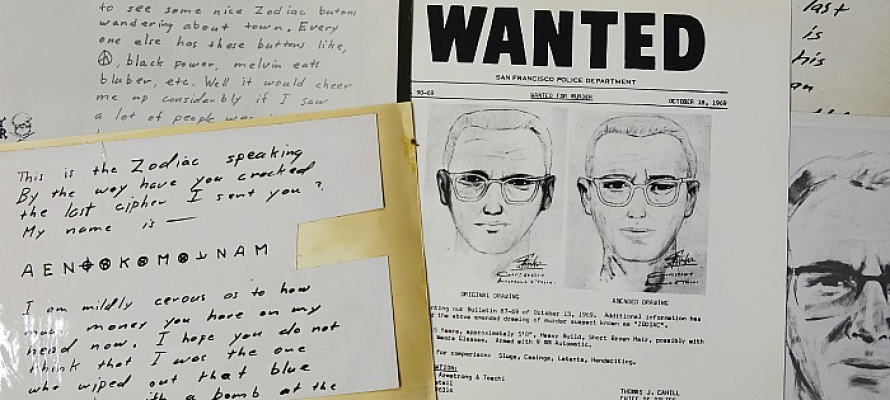 to see some nice Zodiac butons
wandering about town. Every
one else has these buttons like,
black power, melvin eats
bluber, etc. Well it would cheer
me up considerbly if I saw
a lot of people
This is the Zodiac speaking
By the way have you cracked
the last cipher I sent you?
My name is —
AEN⊕⊗K⊗M⊗⅃NAM
I am mildly cerous as to how
much money you have on my
head now. I hope you do not
think that I was the one
who wiped out that blue
with a bomb at the
WANTED
SAN FRANCISCO POLICE DEPARTMENT
90-69 WANTED FOR MURDER OCTOBER 18, 1969
ORIGINAL DRAWING AMENDED DRAWING
nting our Bulletin 87-69 of October 13, 1969. Additional information has
d the above amended drawing of murder suspect known as "ZODIAC".
5 Years, approximately 5'8", Heavy Build, Short Brown Hair, possibly with
Wears Glasses. Armed with 9 MM Automatic.
for comparison: Slugs, Casings, Latents, Handwriting.
Armstrong & Toschi
THOMAS J. CAHILL
CHIEF OF POLICE
last
is
his
an